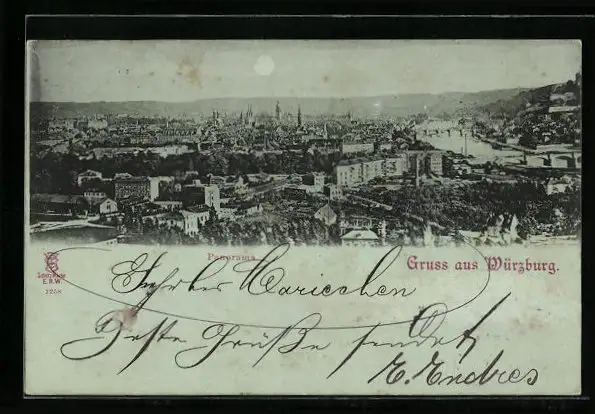 Panorama.
Gruss aus Würzburg.
E.R.W.
2258
Ihr liebes Mariechen
Beste Grüße sendet
E. Endres